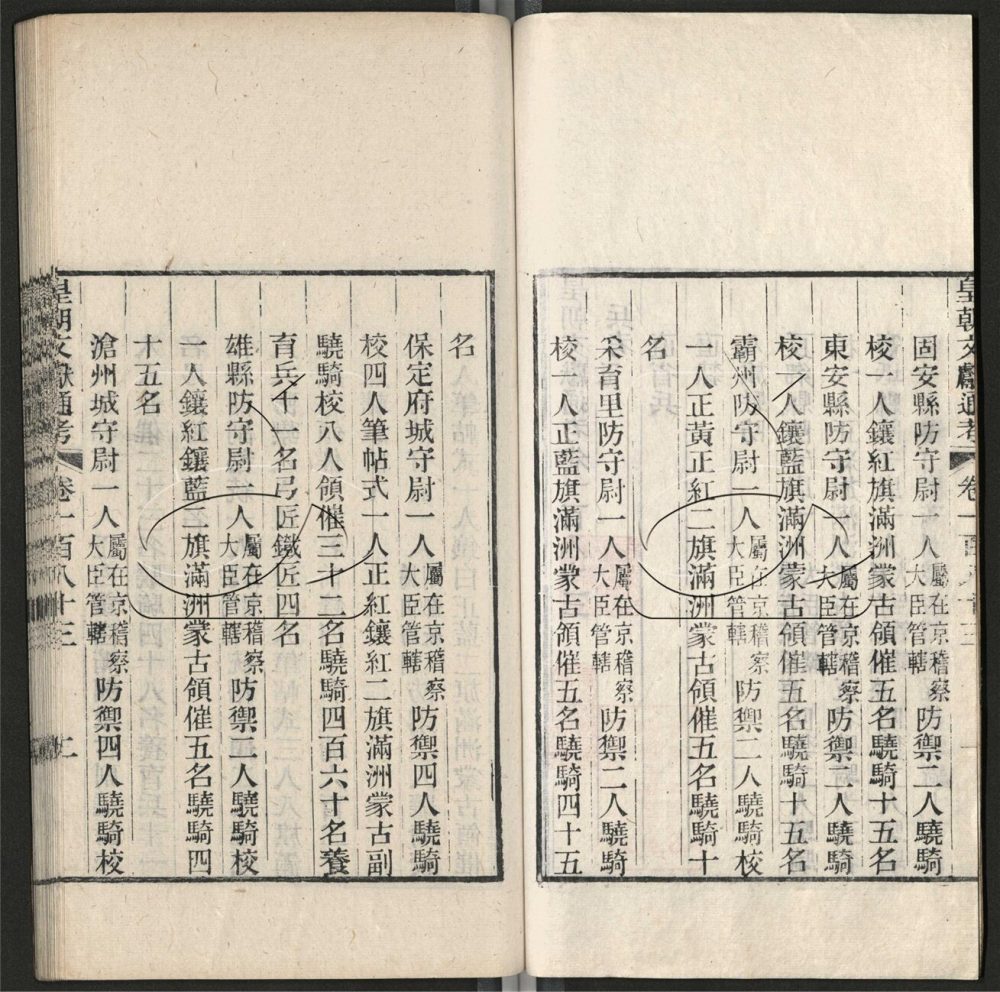 皇朝文獻通考 卷一百八十三
固安縣防守尉一人屬在京稽察大臣管轄防禦二人驍騎
校一人鑲紅旗滿洲蒙古領催五名驍騎十五名
東安縣防守尉一人屬在京稽察大臣管轄防禦二人驍騎
校一人鑲藍旗滿洲蒙古領催五名驍騎十五名
霸州防守尉一人屬在京稽察大臣管轄防禦二人驍騎校
一人正黃正紅二旗滿洲蒙古領催五名驍騎十
名
采育里防守尉一人屬在京稽察大臣管轄防禦二人驍騎
校一人正藍旗滿洲蒙古領催五名驍騎四十五
名
保定府城守尉一人屬在京稽察大臣管轄防禦四人驍騎
校四人筆帖式一人正紅鑲紅二旗滿洲蒙古副
驍騎校八人領催三十二名驍騎四百六十名養
育兵十一名弓匠鐵匠四名
雄縣防守尉一人屬在京稽察大臣管轄防禦二人驍騎校
一人鑲紅鑲藍二旗滿洲蒙古領催五名驍騎四
十五名
滄州城守尉一人屬在京稽察大臣管轄防禦四人驍騎校
皇朝文獻通考 卷一百八十三 二